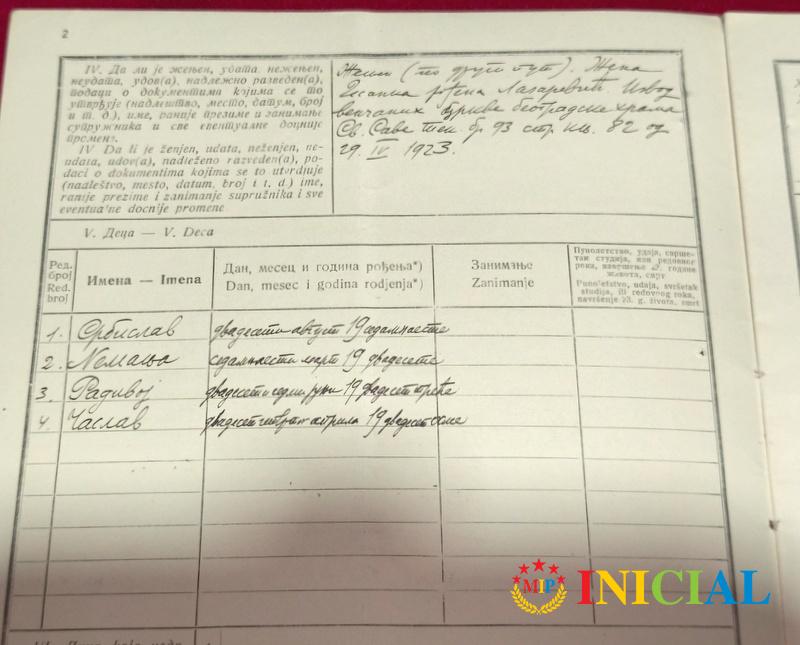 2
IV. Да ли је жењен, удата, нежењен,
неудата, удов(а), надлежно разведен(а),
подаци о документима којима се то
утврђује (надлештво, место, датум, број
и т. д.), име, раније презиме и занимање
супружника и све евентуалне доцније
промене.
IV Da li je ženjen, udata, neženjen, ne-
udata, udov(a), nadležno razveden(a), po-
daci o dokumentima kojima se to utvrdjuje
(nadleštvo, mesto, datum, broj i t. d.) ime,
ranije prezime i zanimanje supružnika i sve
eventualne docnije promene
(по други пут). Жена
рођена Лазаревић. Извод
венчаних цркве београдске храма
Св. Саве тек. бр 93 стр. књ. 82 од
29 IV 1923.
V. Деца — V. Deca
Ред. број Red. broj
Имена — Imena
Дан, месец и година рођења*)
Dan, mesec i godina rodjenja*)
Занимање
Zanimanje
Пунолетство, удаја, сврше-
так студија, или редовног
рока, навршење године
живота, смрт
Punoletstvo, udaja, svršetak
studija, ili redovnog roka,
navršenje 23. g. života, smrt
1. Србислав двадесети август 19 седамнаесте
2. Немања седамнаести март 19 двадесете
3. Радивој двадесет и седми јуни 19 двадесет треће
4. Часлав двадесет четвртог априла 19 двадесет осме
MIP
INICIAL